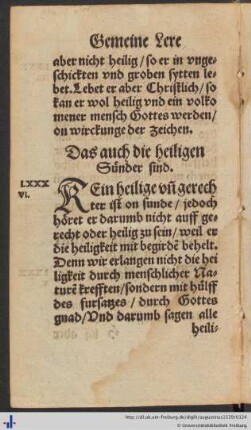 Gemeine Lere
aber nicht heilig/so er in vnge-
schickten vnd groben sytten le-
bet. Lebet er aber Christlich/so
kan er wol heilig vnd ein volko
mener mensch Gottes werden/
on wirckunge der zeichen.
Das auch die heiligen
Sünder sind.
LXXX
vi.
KEin heilige vñ gerech
ter ist on sunde/jedoch
höret er darumb nicht auff ge-
recht oder heilig zu sein/weil er
die heiligkeit mit begirdē behelt.
Denn wir erlangen nicht die hei
ligkeit durch menschlicher Na-
turē krefften/sondern mit hülff
des fursatzes/durch Gottes
gnad/Vnd darumb sagen alle
heili-
http://dl.ub.uni-freiburg.de/diglit/augustinus1539/0324
© Universitätsbibliothek Freiburg